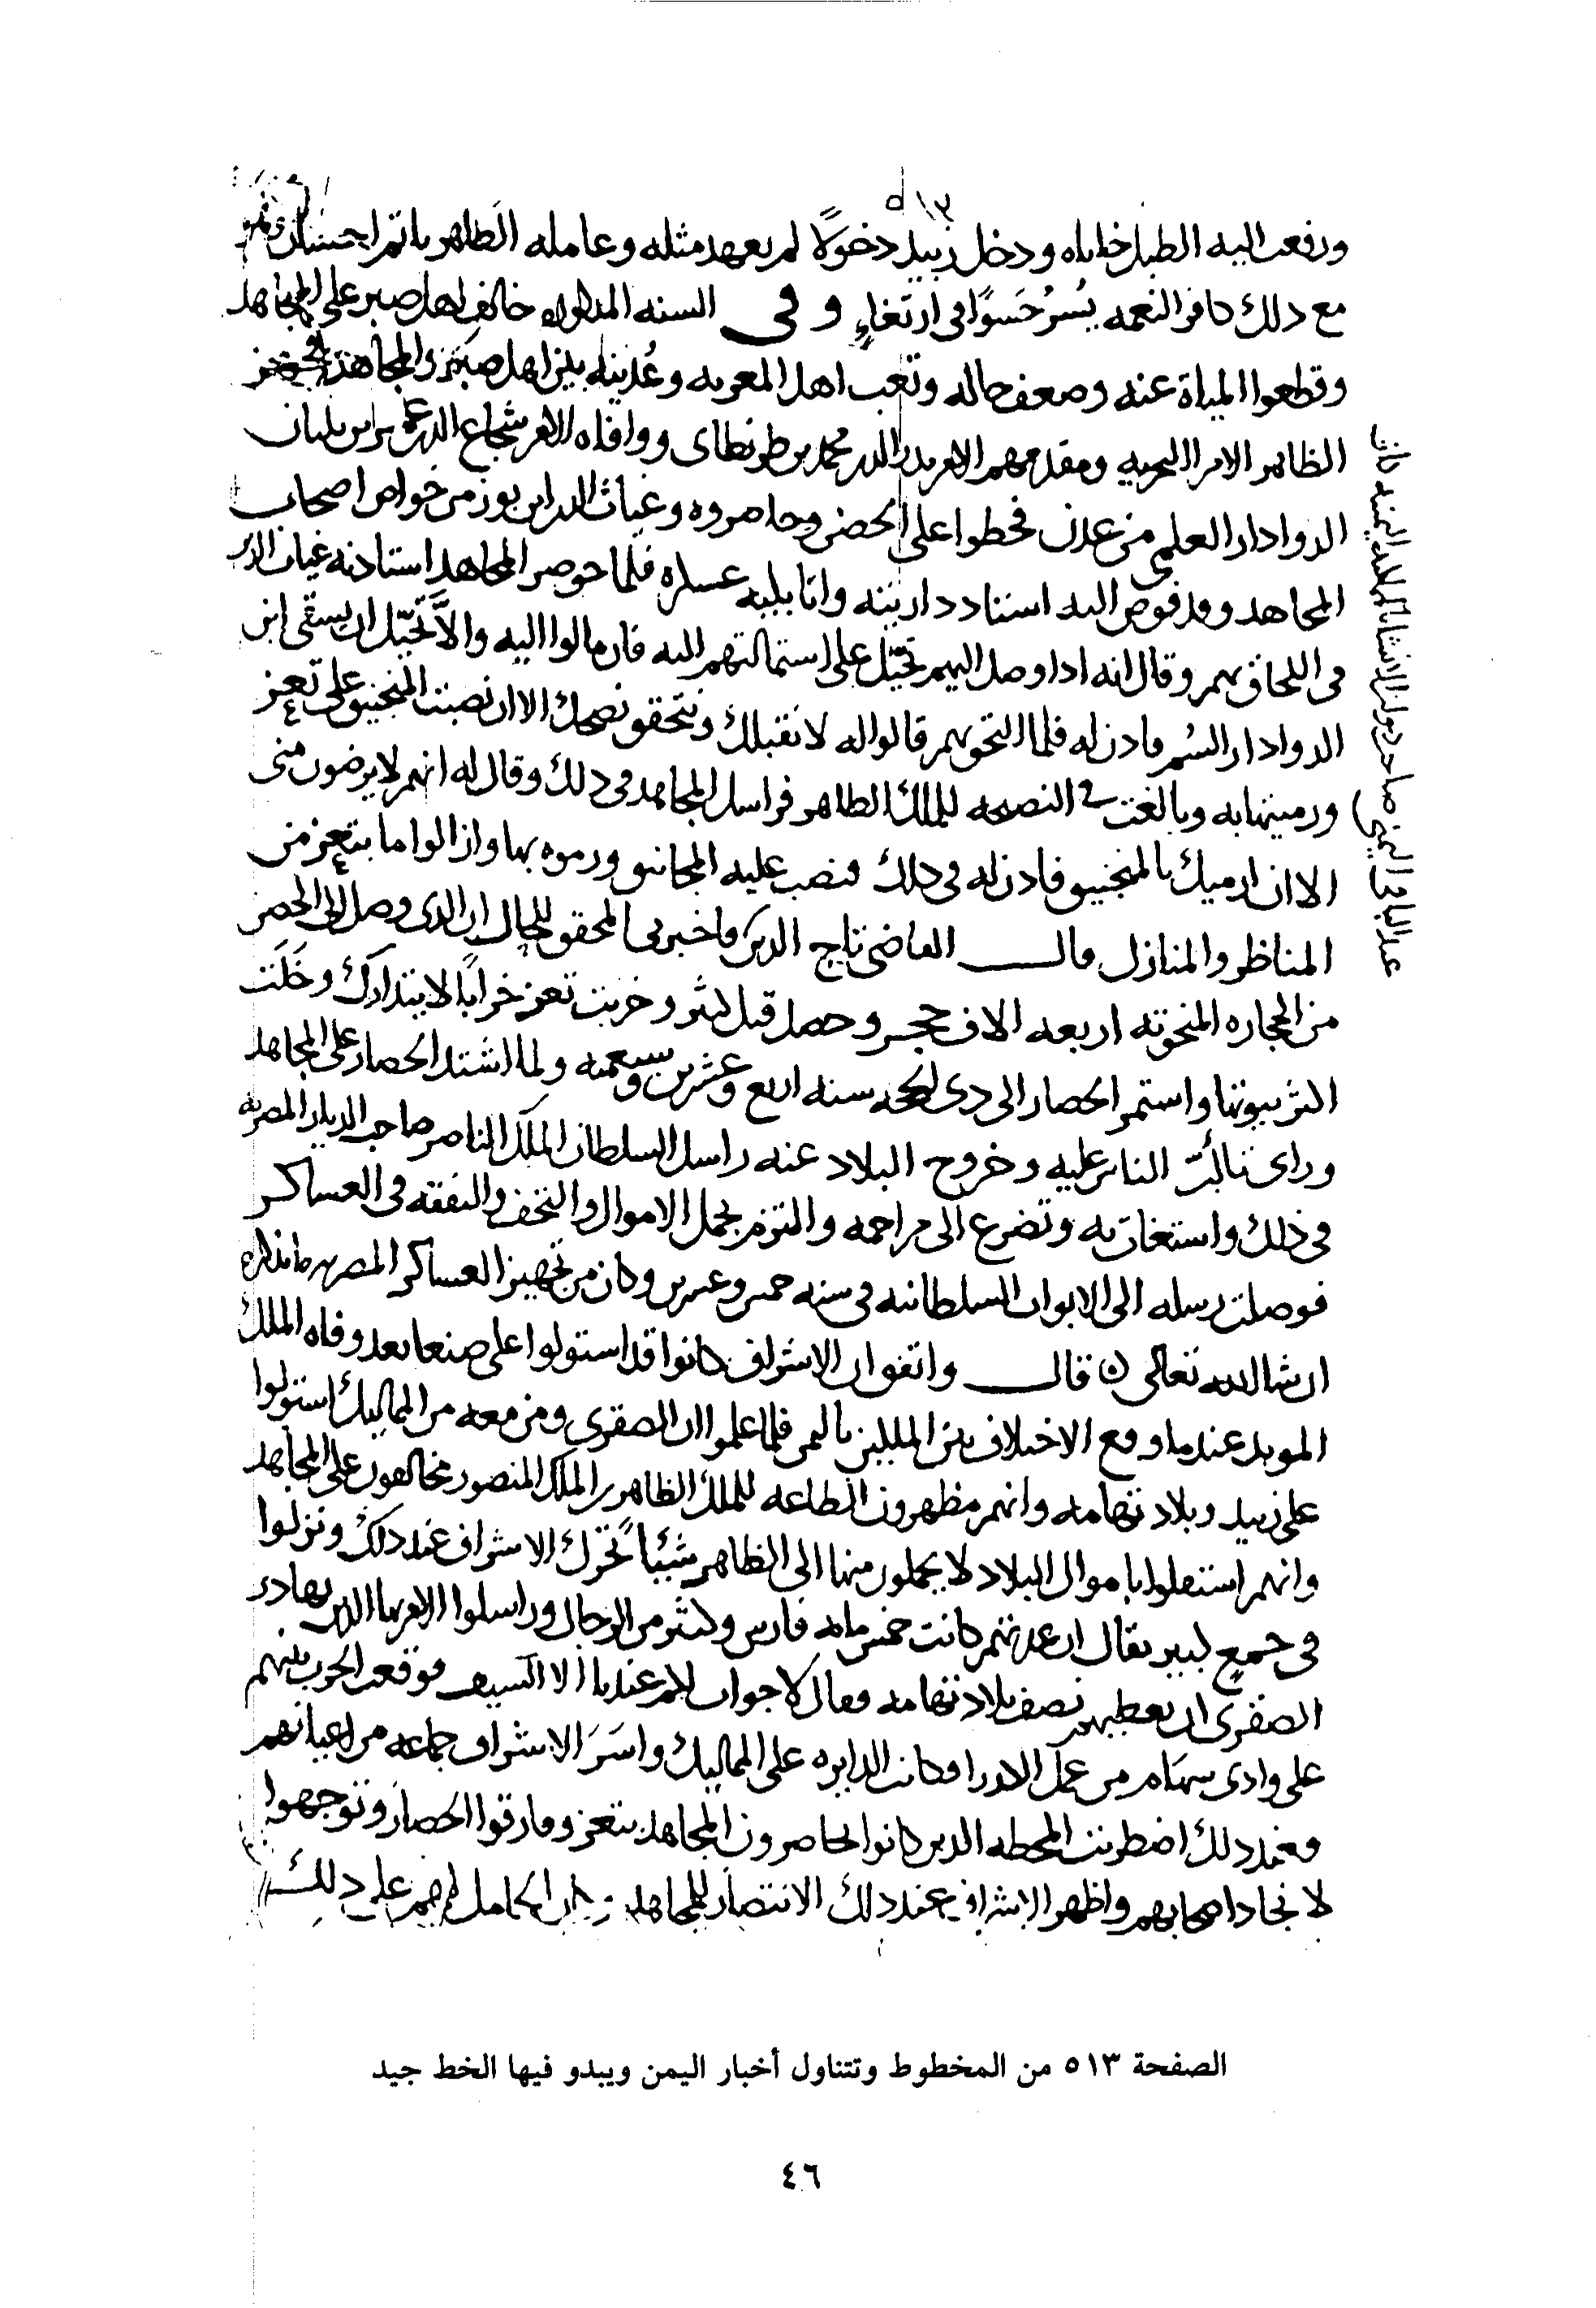 ٥١٣
ورفعت اليه الطبلخاناه ودخل زبيد دخولًا لم يعهد مثله وعامله الظاهر باتم احسان
مع ذلك كافر النعمه يُسرُ حَسوًا في ارتغاءٍ وفي السنه المذكوره خالف اهل صبر على المجاهد
وقطعوا المياة عنه وضعف حاله وتعب اهل المعربه وعُدينه بين اهل صبر والمجاهد
الظاهر الامرا البحريه ومقدمهم الامير بدر الدين محمد بن طرنطاى ووافاه الامير شجاع الدين عمر بن بلبان
الدوادار العلمي من عدن فحطوا على الحصن وحاصروه وغياث الدين بن بوز من خواص اصحاب
المجاهد وقد فوض اليه استاد داريته واتابكيه عسكره فلما حوصر المجاهد استاذنه غياث الدين
في اللحاق بهم وقال انه اذا وصل اليهم تحيّل على استمالتهم اليه فان مالوا اليه والّا تحيّل ان يسقى ابن
الدوادار السُم فاذن له فلما التحق بهم قالوا له لا نقبلك ونتحقق نصحك الا ان نصبت المنجنيق على تعز
ورميتها به وبالغت في النصيحه للملك الظاهر فراسل المجاهد في ذلك وقال له انهم لا يرضون منى
الا ان ارميك بالمنجنيق فاذن له في ذلك فنصب عليه المجانيق ورموه بها وازالوا ما بتعز من
المناظر والمنازل قال القاضي تاج الدين واخبرني المحقق للحال ان الذى وصل الى الحصن
من الحجاره المنحوته اربعه الاف حجر وحصل قتل كثير وخربت تعز خرابًا لا يتدارك وخَلَت
اكثر بيوتها واستمر الحصار الى ذى الحجه سنه اربع وعشرين وسبعمئه ولما اشتد الحصار على المجاهد
وراى تالُّب الناس عليه وخروج البلاد عنه راسل السلطان الملك الناصر صاحب الديار المصريه
في ذلك واستغاث به وتضرع الى مراحمه والتزم بحمل الاموال والتحف والنفقه في العساكر
فوصلت رسله الى الابواب السلطانيه في سنه خمس وعشرين وكان من تجهيز العساكر المصريه ما نذكره
ان شا الله تعالى ۞ قال واتفق ان الاشراف كانوا قد استولوا على صنعا بعد وفاه الملك
المويد عندما وقع الاختلاف بين الملكين باليمن فلما علموا ان الصقرى ومن معه من المماليك استولوا
على زبيد وبلاد تهامه وانهم مظهرون الطاعه للملك الظاهر بن الملك المنصور مخالفون على المجاهد
وانهم استقلوا باموال البلاد لا يحملون منها الى الظاهر شيئاً تحرك الاشراف عند ذلك ونزلوا
في جمعٍ كبير يقال ان عدتهم كانت خمس مايه فارس وكثير من الرجال وراسلوا الامير بها الدين بهادر
الصقرى ان يعطيهم نصف بلاد تهامه فقال لا جواب لكم عندنا الا السيف فوقعت الحرب بينهم
على وادى سهام من عمل الكدرا وكانت الدايره على المماليك واسَرَ الاشراف جماعه من اعيانهم
فعند ذلك اضطربت المحطه الذين كانوا يحاصرون المجاهد بتعز وفارقوا الحصار وتوجهوا
لانجاد اصحابهم واظهر الاشراف عند ذلك الانتصار للمجاهد وكان الحامل لهم على ذلك
عبد الباقي اليمني صاحب ديوان الانشا بالبلاد اليمنيه كان
الصفحة ٥١٣ من المخطوط وتتناول أخبار اليمن ويبدو فيها الخط جيد
٤٦